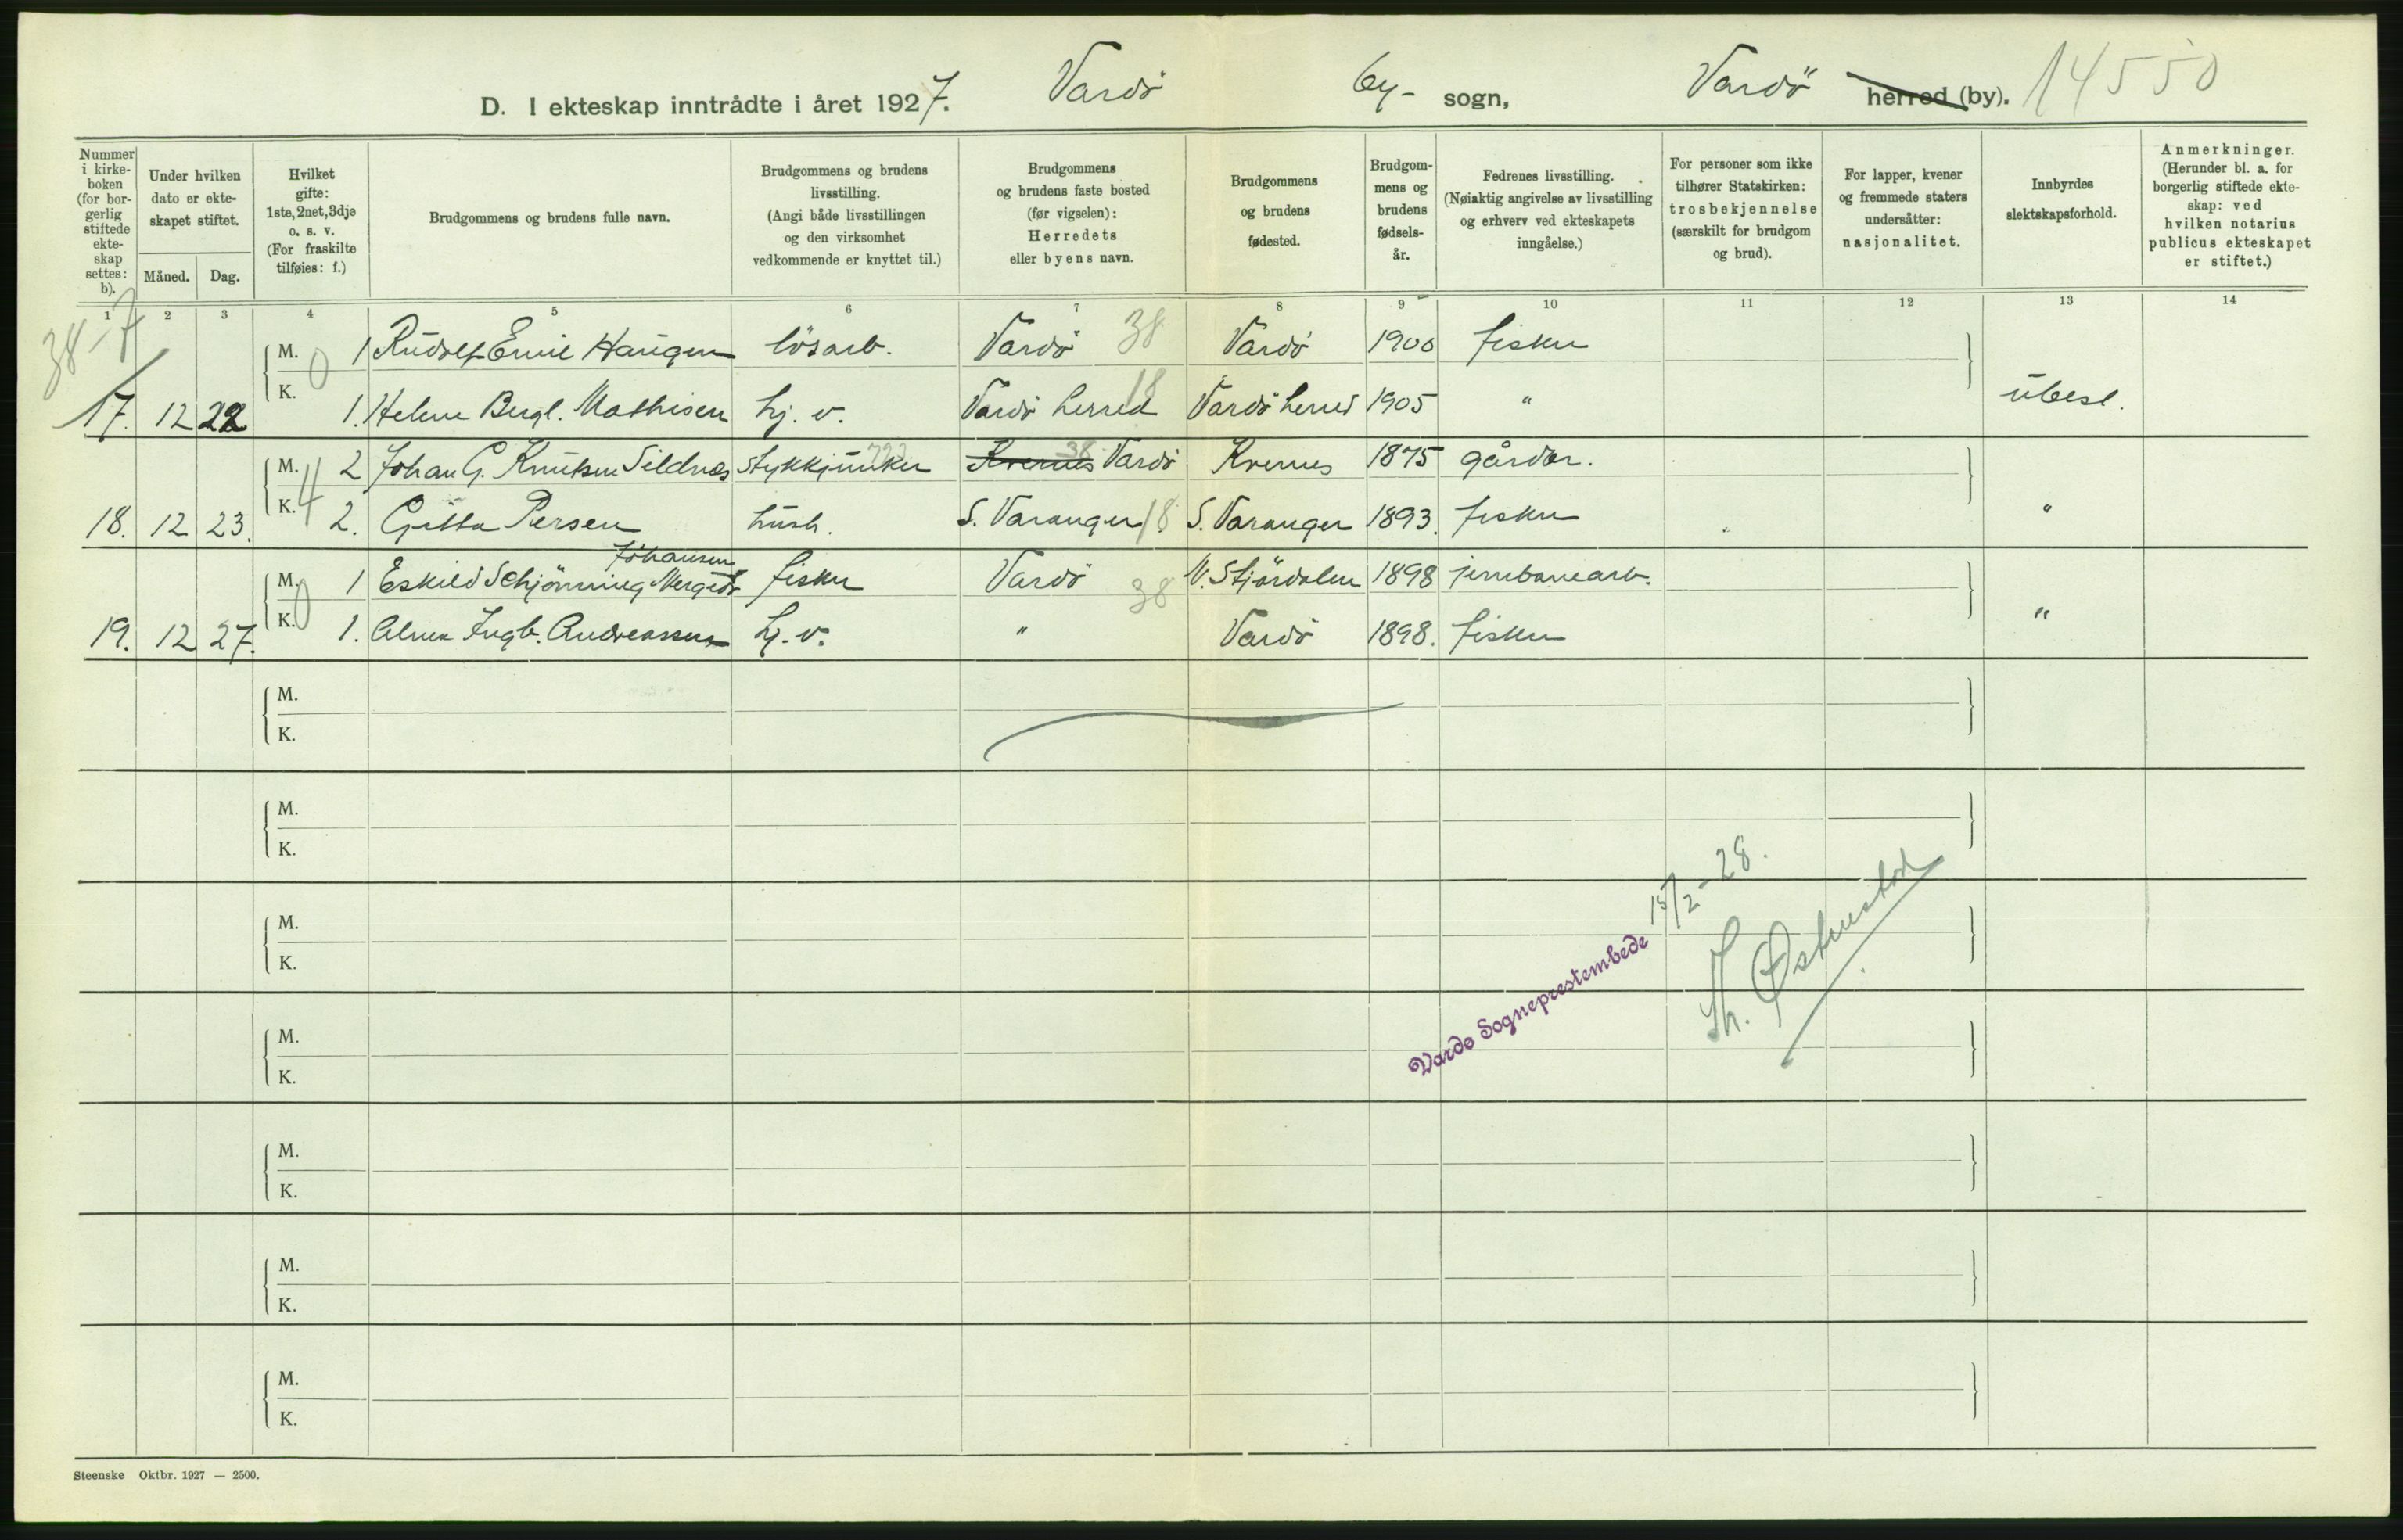 D. I ekteskap inntrådte i året 1927. Vardö by- sogn, Vardö herred (by). 14550
Nummer i kirkeboken (for borgerlig stiftede ekteskap settes: b).
Under hvilken dato er ekteskapet stiftet.
Måned. Dag.
Hvilket gifte: 1ste, 2net, 3dje o. s. v. (For fraskilte tilføies: f.)
Brudgommens og brudens fulle navn.
Brudgommens og brudens livsstilling. (Angi både livsstillingen og den virksomhet vedkommende er knyttet til.)
Brudgommens og brudens faste bosted (før vigselen): Herredets eller byens navn.
Brudgommens og brudens fødested.
Brudgommens og brudens fødselsår.
Fedrenes livsstilling. (Nøiaktig angivelse av livsstilling og erhverv ved ekteskapets inngåelse.)
For personer som ikke tilhører Statskirken: trosbekjennelse (særskilt for brudgom og brud).
For lapper, kvener og fremmede staters undersåtter: nasjonalitet.
Innbyrdes slektskapsforhold.
Anmerkninger. (Herunder bl. a. for borgerlig stiftede ekteskap: ved hvilken notarius publicus ekteskapet er stiftet.)
1 2 3 4 5 6 7 8 9 10 11 12 13 14
38-7
M. 0 1 Rudolf Emil Haugen lösarb. Vardö 38 Vardö 1900 fisker
17. 12 22 K. 1. Helene Bergl. Mathisen hj. v. Vardö herred 18 Vardö herred 1905 " ubesl.
M. 4 2 Johan G. Knutsen Sildnes stykkjunker 793 Kvernes Vardö 38 Kvernes 1875 gårdbr.
18. 12 23. K. 2. Gitta Persen hush. S. Varanger 18 S. Varanger 1893. fisker "
Johansen
M. 0 1 Eskild Schjönning fisker Vardö 38 N. Stjördalen 1898 jernbanearb.
19. 12 27. K. 1. Alma Ingb. Andreassen hj. v. " Vardö 1898. fisker "
M.
K.
M.
K.
M.
K.
M.
K.
M.
K.
M.
K.
M.
K.
Vardø Sogneprestembede 15/2-28.
Th.
Steenske Oktbr. 1927 — 2500.